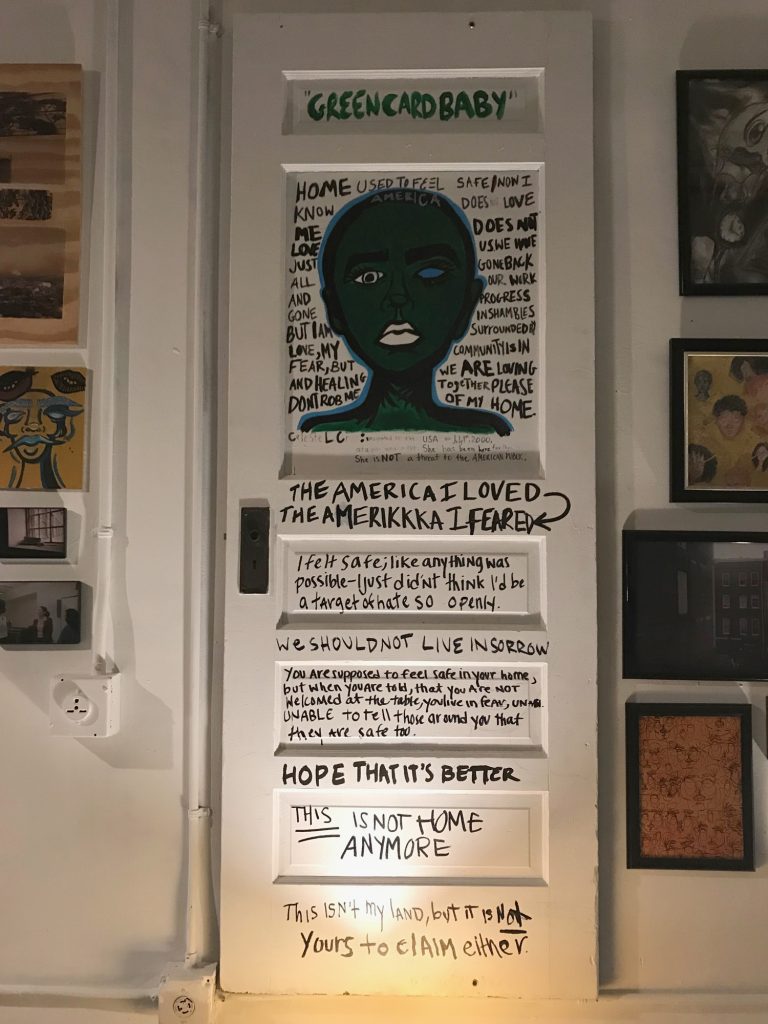 "GREEN CARD BABY"
HOME USED TO FEEL SAFE/NOW I
KNOW AMERICA DOES LOVE
ME DOES NOT
LOVE US. WE HAVE
JUST GONE BACK
ALL OUR WORK
AND PROGRESS
GONE IN SHAMBLES
BUT I AM SURROUNDED BY
LOVE, MY COMMUNITY IS IN
FEAR, BUT WE ARE LOVING
AND HEALING TOGETHER PLEASE
DONT ROB ME OF MY HOME.
Celeste L USA 2000.
She has been here for
She is NOT a threat to the AMERICAN PUBLIC.
THE AMERICA I LOVED
THE AMERIKKKA I FEARED
I felt safe; like anything was
possible-I just did'nt think I'd be
a target of hate so openly.
We SHOULD NOT LIVE IN SORROW
You are supposed to feel safe in your home,
but when you are told, that you are NOT
welcomed at the table, you live in fear,
UNABLE to tell those around you that
they are safe too.
HOPE THAT IT'S BETTER
THIS IS NOT HOME
ANYMORE
This ISN'T my LAND, but IT IS NOT
Yours to CLAIM either.